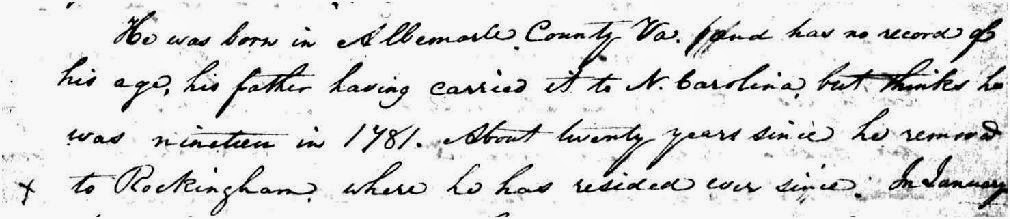 He was born in Albemarle County Va. and has no record of
his age, his father having carried it to N. Carolina, but thinks he
was nineteen in 1781. About twenty years since he removed
x to Rockingham, where he has resided ever since. In January